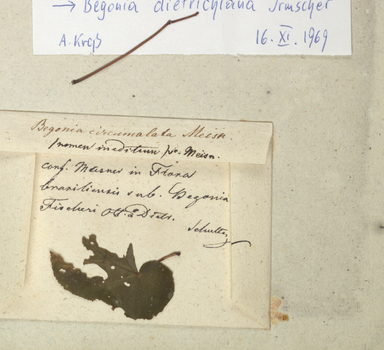 → Begonia dietrichiana Irmscher
A. Kreß 16. XI. 1969
Begonia circumalata Meisn.
(nomen ineditum fr. Meisn.
conf. in Flora
brasiliensis sub. Begonia
Fischeri